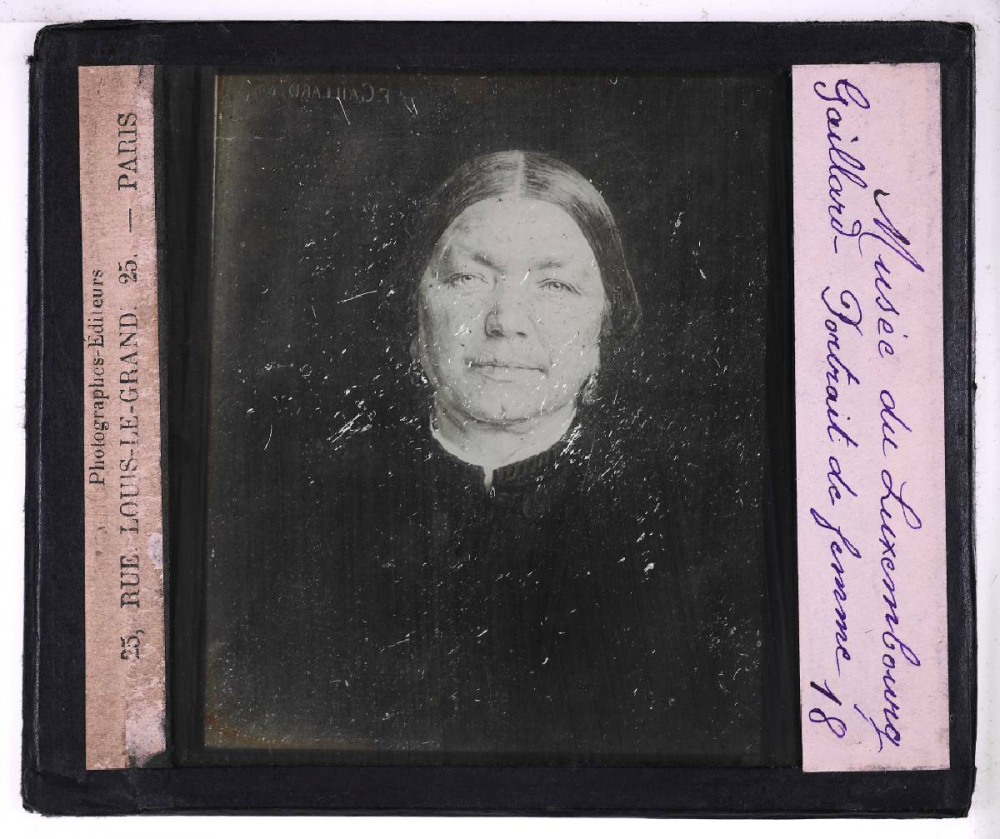 Photographes-Éditeurs
25, RUE LOUIS-LE-GRAND, 25. — PARIS
F. GAILLARD
Musée du Luxembourg
Gaillard - Portrait de femme 18